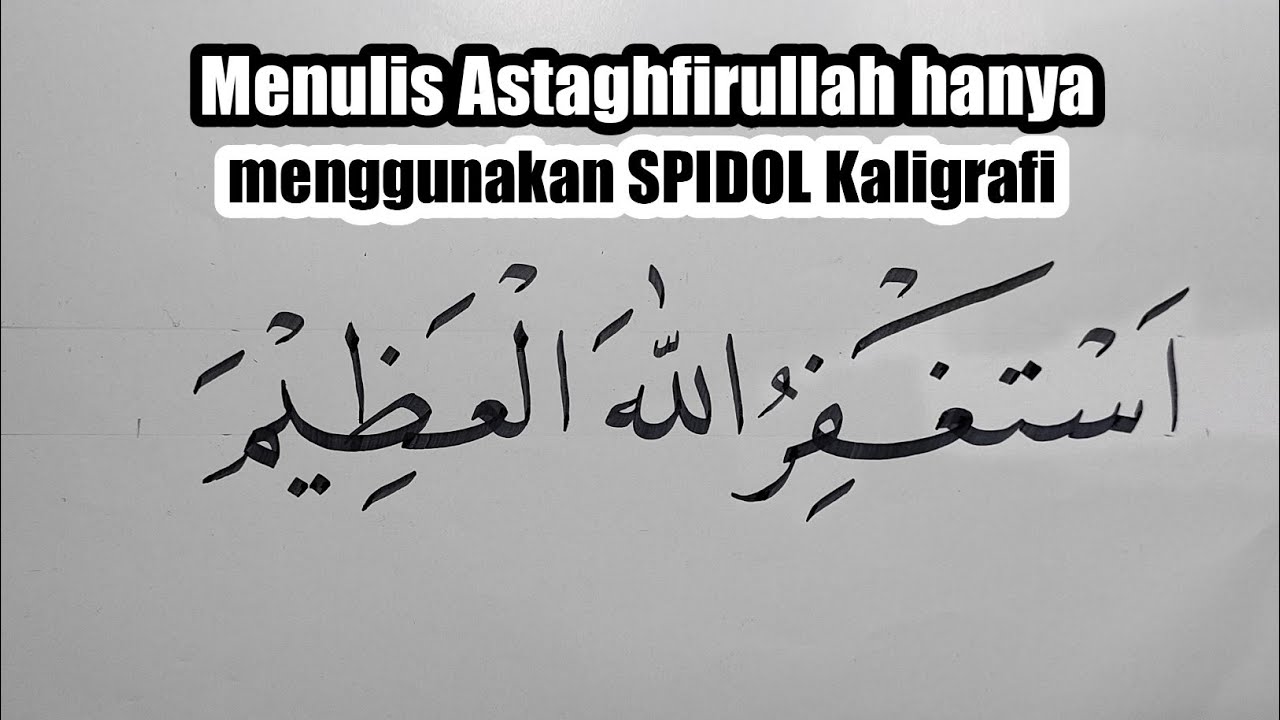 Menulis Astaghfirullah hanya
menggunakan SPIDOL Kaligrafi
اَسْتَغْفِرُ اللّٰهَ الْعَظِيْمَ